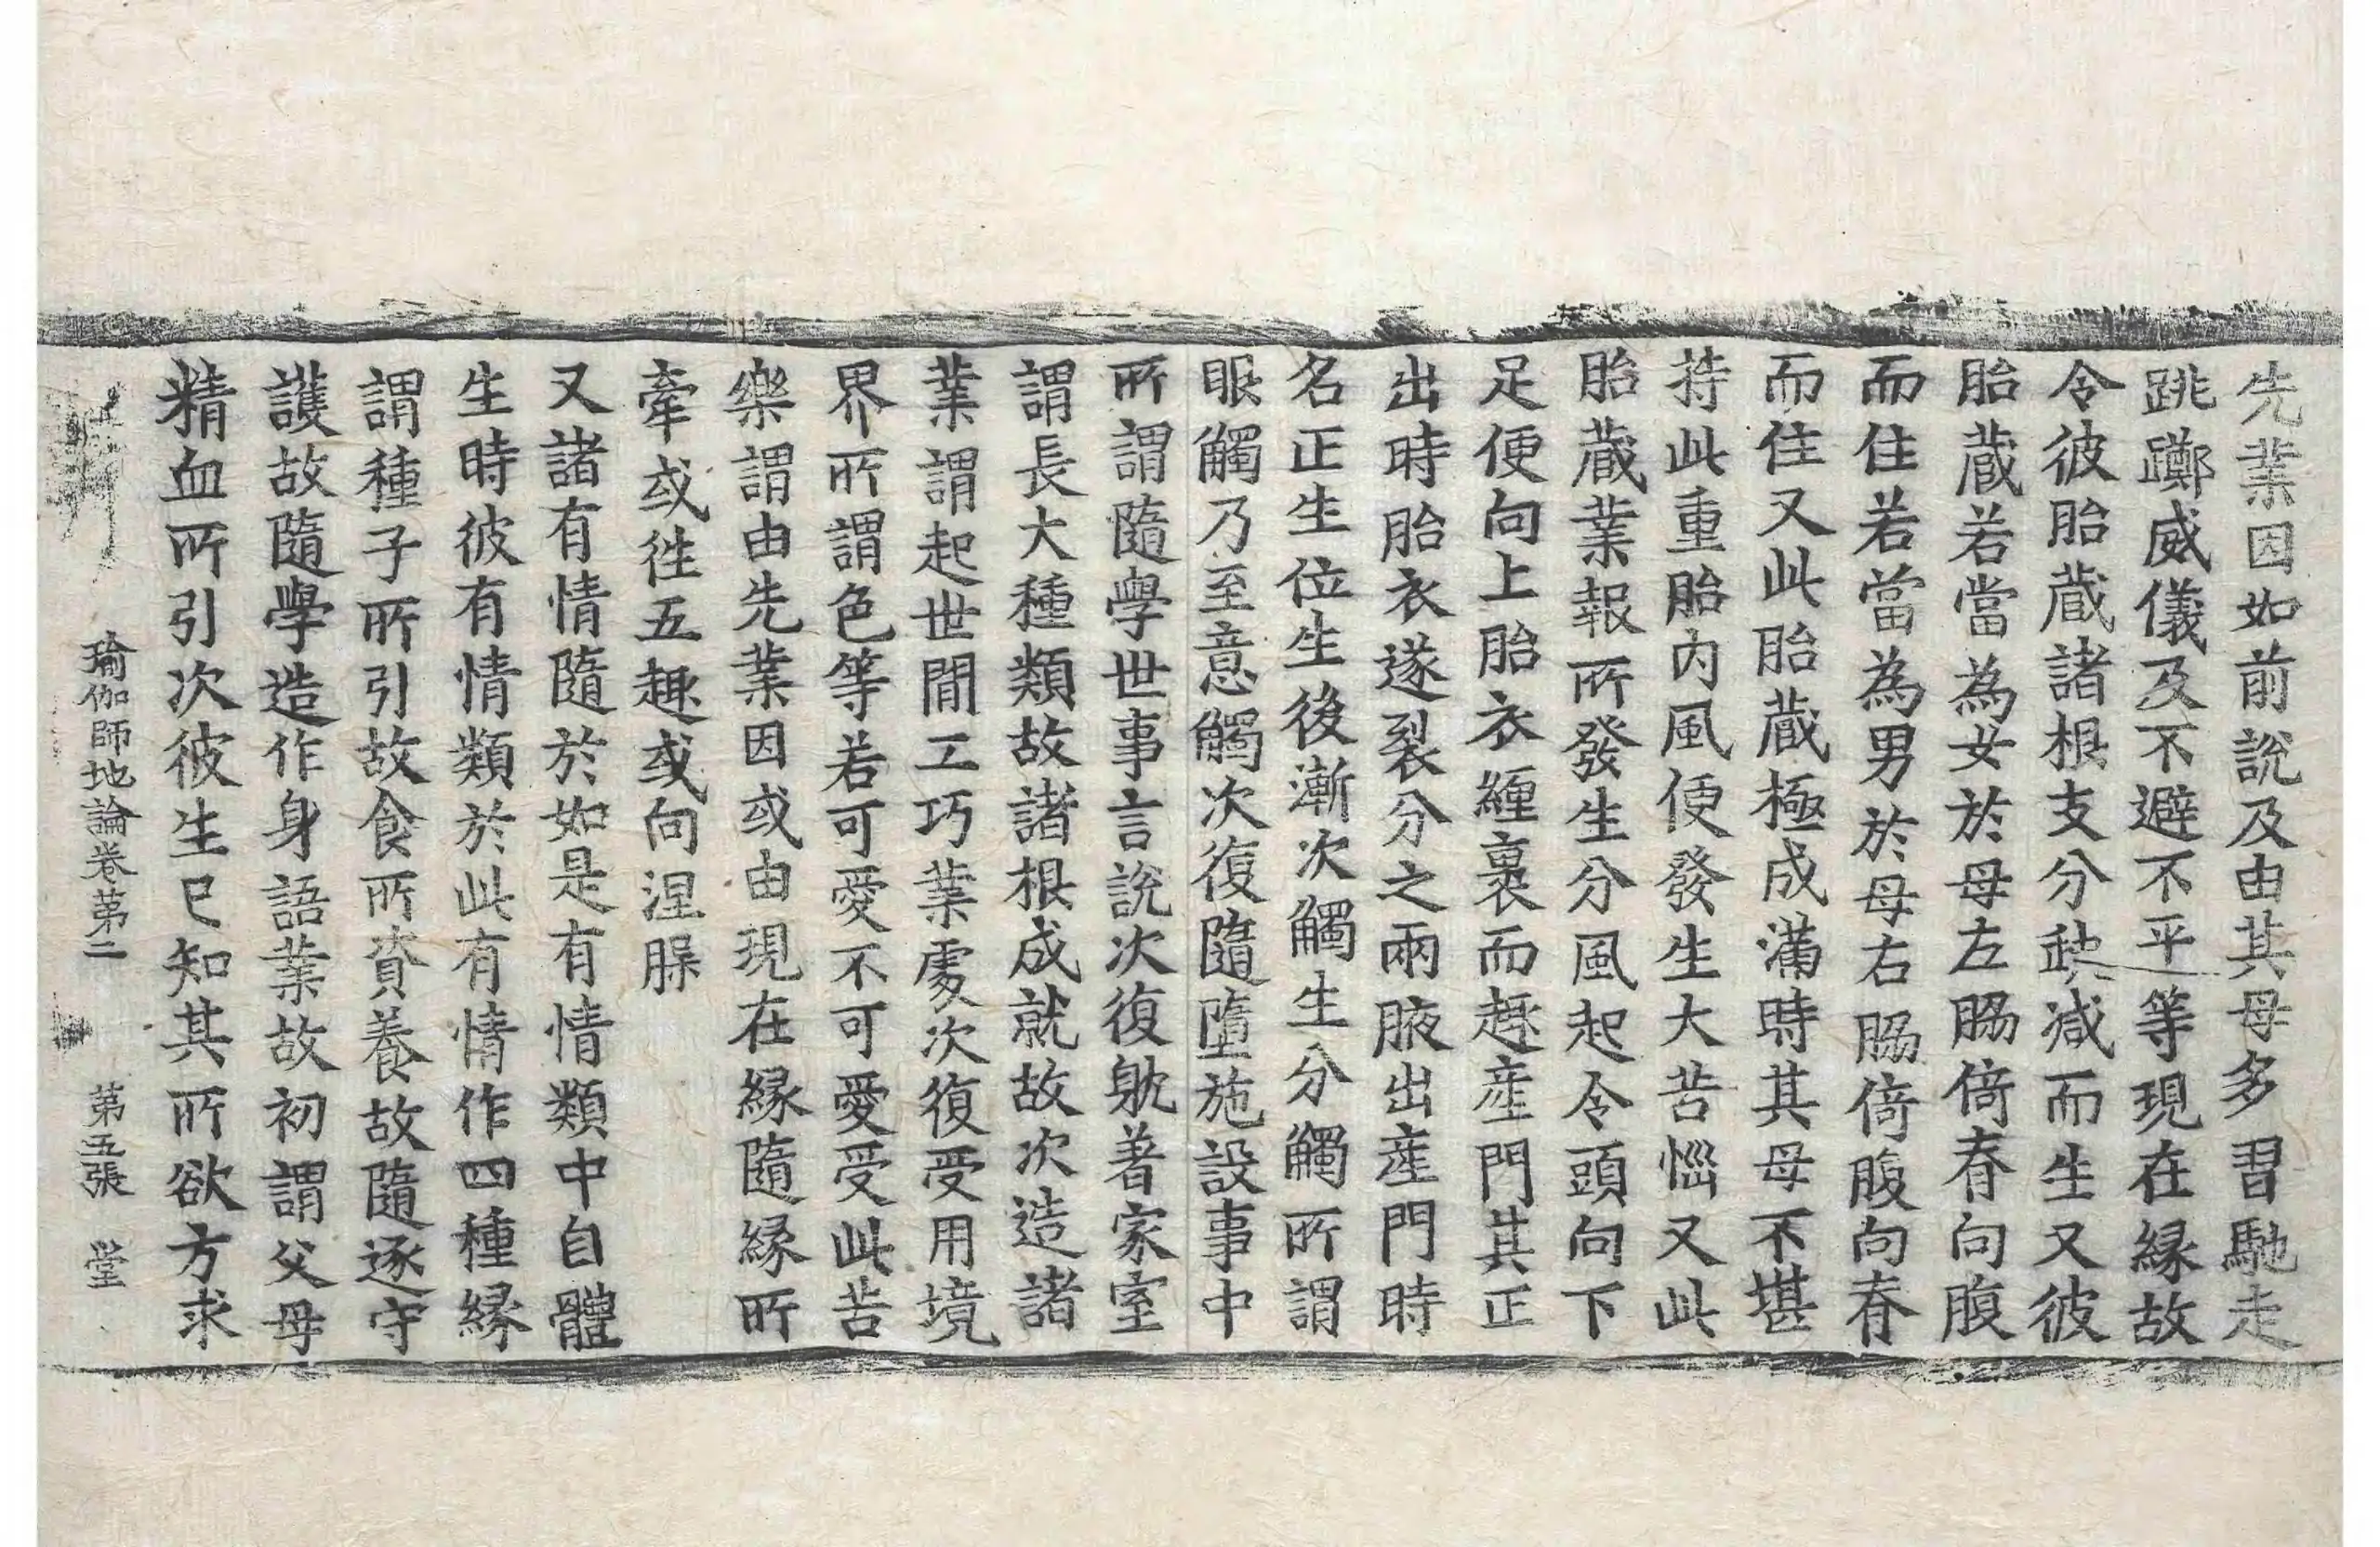 先業因如前說及由其母多習馳走
跳躑威儀及不避不平等現在緣故
令彼胎藏諸根支分缺減而生又彼
胎藏若當為女於母左脇倚脊向腹
而住若當為男於母右脇倚腹向脊
而住又此胎藏極成滿時其母不堪
持此重胎內風便發生大苦惱又此
胎藏業報所發生分風起令頭向下
足便向上胎衣纏裹而趣產門其正
出時胎衣遂裂分之兩腋出產門時
名正生位生後漸次觸生分觸所謂
眼觸乃至意觸次復隨墮施設事中
所謂隨學世事言說次復躭著家室
謂長大種類故諸根成就故次造諸
業謂起世間工巧業處次復受用境
界所謂色等若可愛不可愛受此苦
樂謂由先業因或由現在緣隨緣所
牽或往五趣或向涅槃
又諸有情隨於如是有情類中自體
生時彼有情類於此有情作四種緣
謂種子所引故食所資養故隨逐守
護故隨學造作身語業故初謂父母
精血所引次彼生已知其所欲方求
瑜伽師地論卷第二　第五張　堂